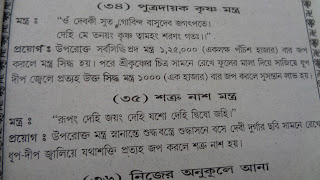 (৩৪) পুত্রদায়ক কৃষ্ণ মন্ত্র
মন্ত্র : "ওঁ দেবকী সুত গোবিন্দ বাসুদেব জগৎপতে।
দেহি মে তনয়ং কৃষ্ণ ত্বামহং শরণং গতঃ।।"
প্রয়োগ : উপরোক্ত সর্বসিদ্ধিপ্রদ মন্ত্র ১,২৫,০০০ (একলক্ষ পঁচিশ হাজার) বার জপ
করলে মন্ত্র সিদ্ধ হয়। পরে শ্রীকৃষ্ণের চিত্র সামনে রেখে ফুলের মালা দিয়ে সাজিয়ে ধূপ
দীপ জ্বেলে প্রত্যহ উক্ত সিদ্ধ মন্ত্র ১০০০ (এক হাজার) বার জপ করলে সুসন্তান লাভ হয়।
(৩৫) শত্রু নাশ মন্ত্র
মন্ত্র : "রূপং দেহি জয়ং দেহি যশো দেহি দ্বিষো জহি।"
প্রয়োগ : উপরোক্ত মন্ত্র স্নানান্তে শুদ্ধ বস্ত্রে শুদ্ধাসনে বসে দেবী দুর্গার ছবি সামনে রেখে
ধূপ-দীপ জ্বালিয়ে যথাশক্তি প্রত্যহ জপ করলে শত্রু নাশ হয়।
(৩৬) নিজের অনুকূলে আনা